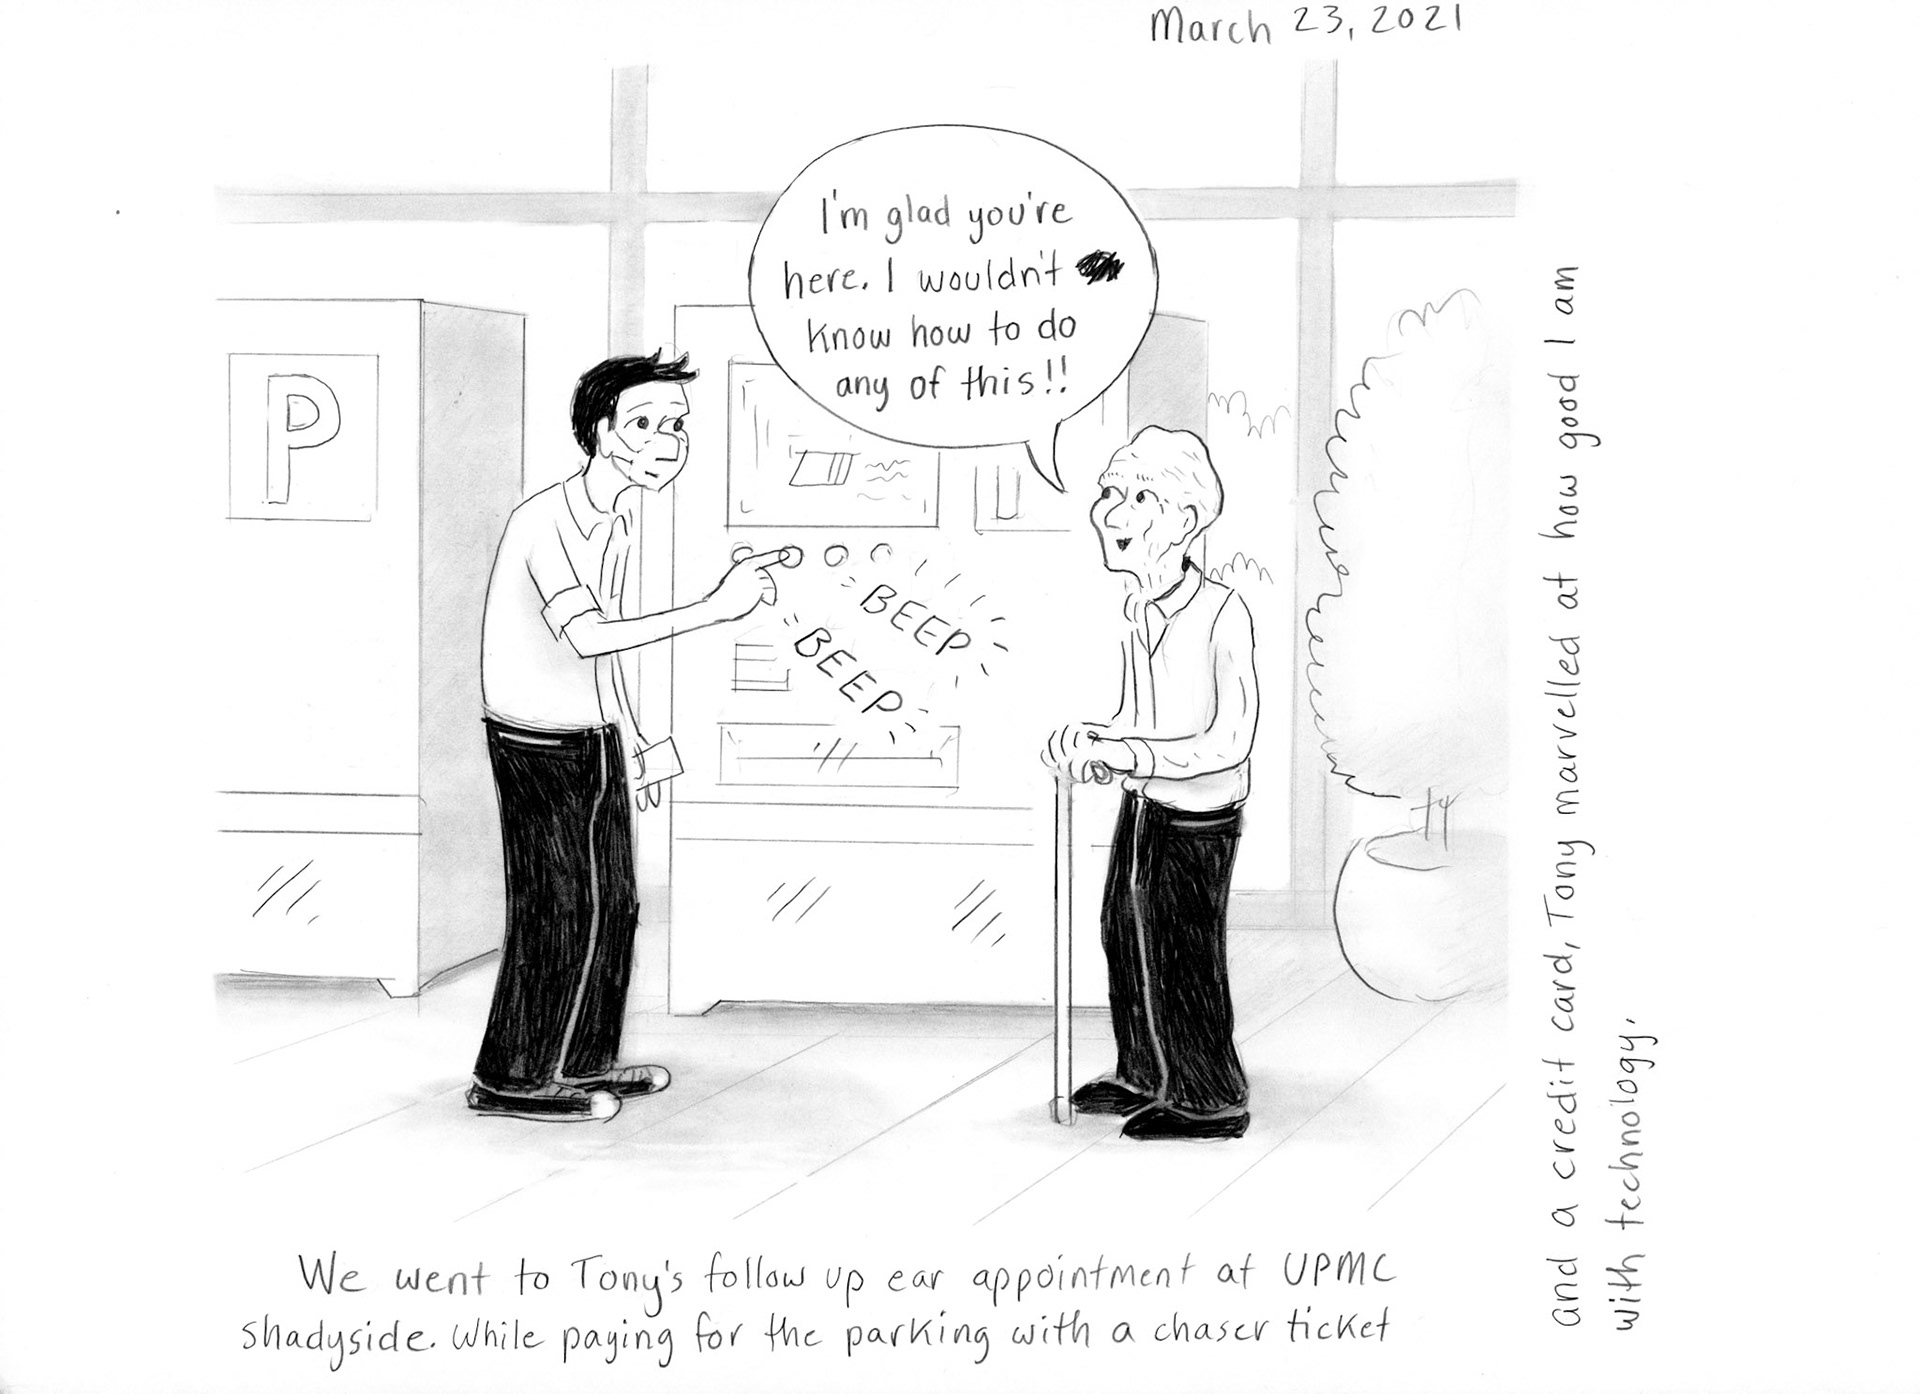 March 23, 2021
I'm glad you're
here. I wouldn't
know how to do
any of this!!
P
BEEP
BEEP
We went to Tony's follow up ear appointment at UPMC
Shadyside. While paying for the parking with a chaser ticket
and a credit card, Tony marvelled at how good I am
with technology.